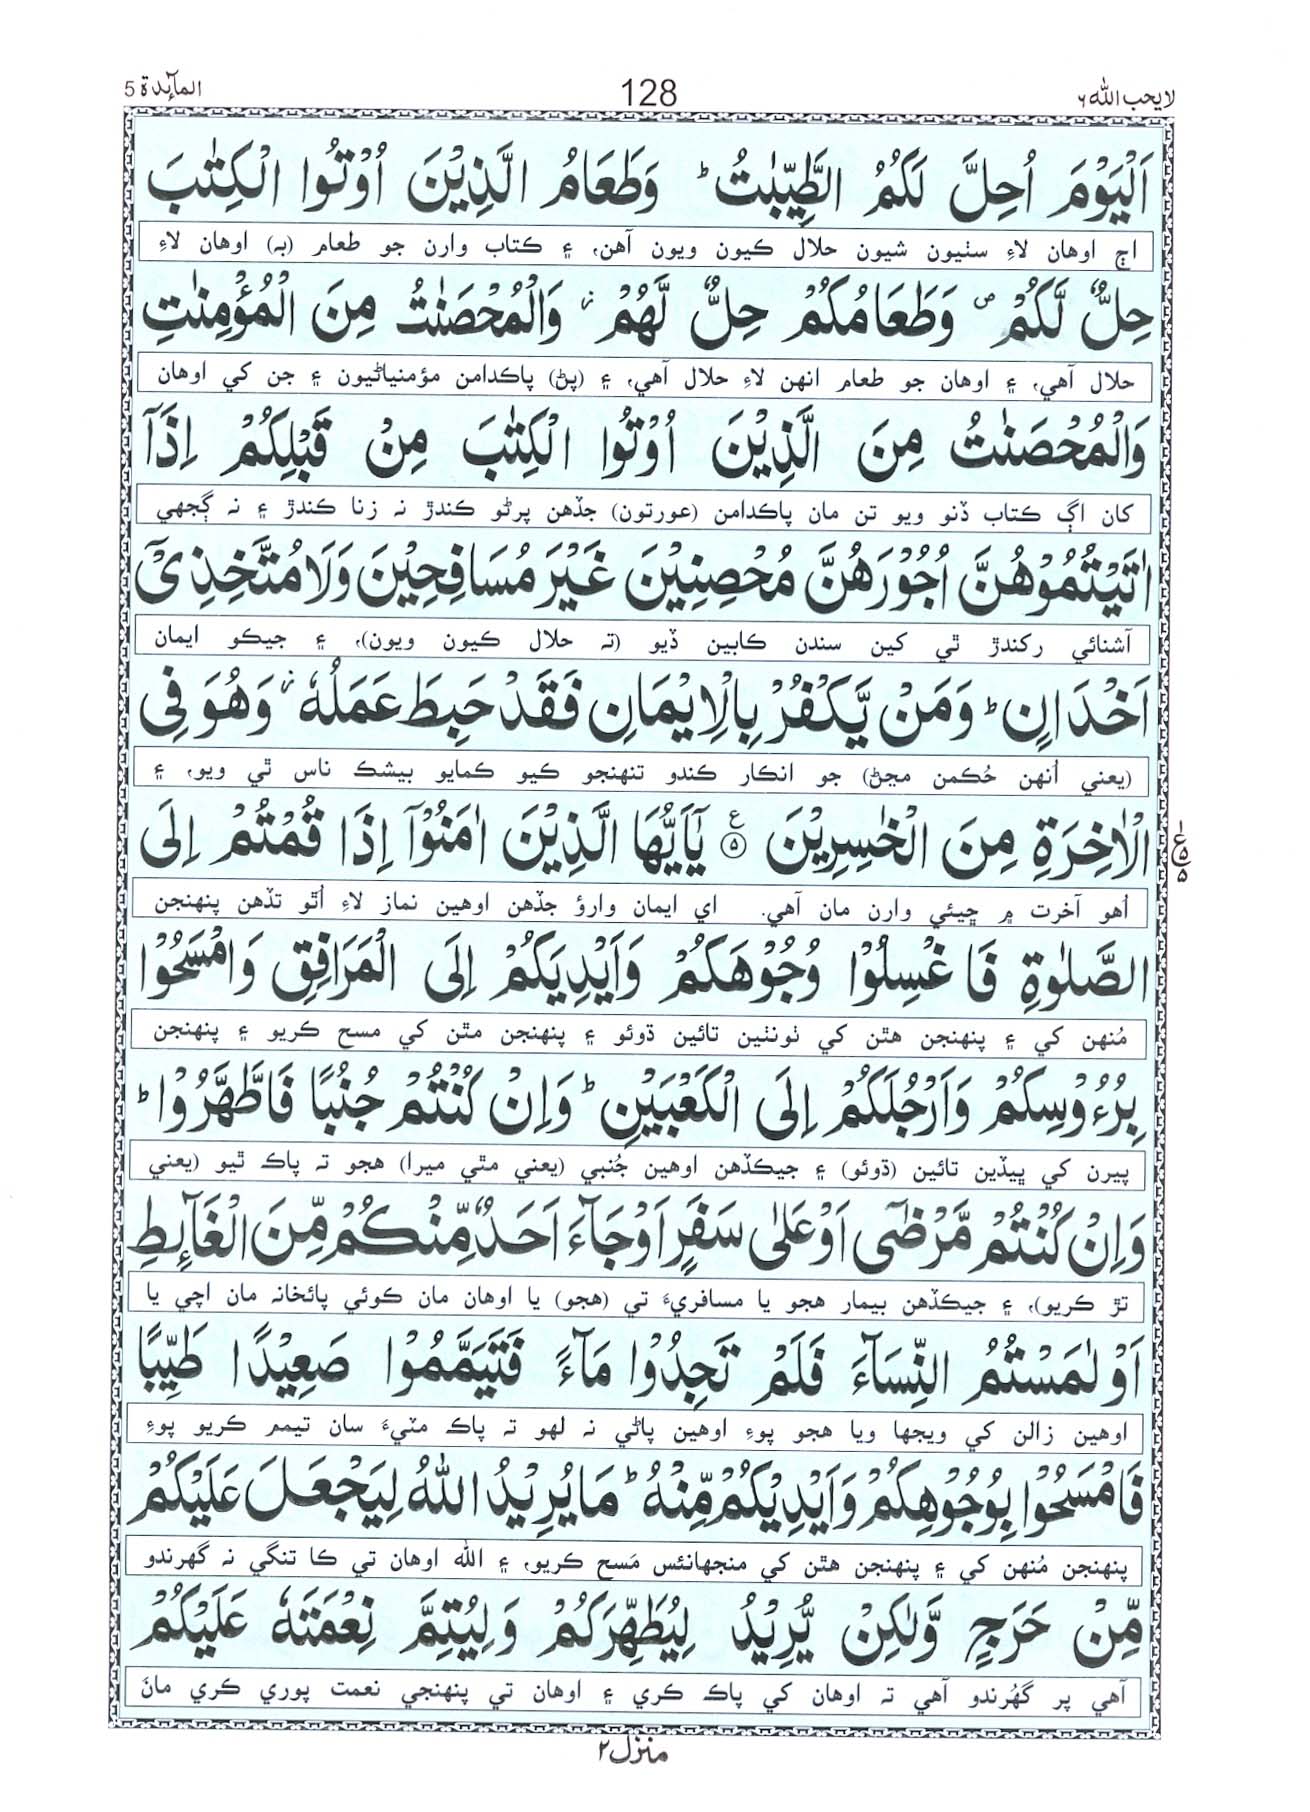 المآئدة 5
128
لايحب الله ٦
اَلْيَوْمَ اُحِلَّ لَكُمُ الطَّيِّبٰتُ ؕ وَطَعَامُ الَّذِيْنَ اُوْتُوا الْكِتٰبَ
اڄ اوهان لاءِ سٺيون شيون حلال ڪيون ويون آهن، ۽ ڪتاب وارن جو طعام (به) اوهان لاءِ
حِلٌّ لَّكُمْ ۪ وَطَعَامُكُمْ حِلٌّ لَّهُمْ ؗ وَالْمُحْصَنٰتُ مِنَ الْمُؤْمِنٰتِ
حلال آهي، ۽ اوهان جو طعام انهن لاءِ حلال آهي، ۽ (پڻ) پاڪدامن مؤمنياڻيون ۽ جن کي اوهان
وَالْمُحْصَنٰتُ مِنَ الَّذِيْنَ اُوْتُوا الْكِتٰبَ مِنْ قَبْلِكُمْ اِذَآ
کان اڳ ڪتاب ڏنو ويو تن مان پاڪدامن (عورتون) جڏهن پرڻو ڪندڙ نہ زنا ڪندڙ ۽ نہ ڳجهي
اٰتَيْتُمُوْهُنَّ اُجُوْرَهُنَّ مُحْصِنِيْنَ غَيْرَ مُسَافِحِيْنَ وَلَا مُتَّخِذِيْٓ
آشنائي رکندڙ ٿي کين سندن ڪابين ڏيو (تہ حلال ڪيون ويون)، ۽ جيڪو ايمان
اَخْدَانٍ ؕ وَمَنْ يَّكْفُرْ بِالْاِيْمَانِ فَقَدْ حَبِطَ عَمَلُهٗ ؗ وَهُوَ فِى
(يعني اُنهن حُڪمن مڃڻ) جو انڪار ڪندو تنهنجو ڪيو ڪمايو بيشڪ ناس ٿي ويو، ۽
الْاٰخِرَةِ مِنَ الْخٰسِرِيْنَ ۝٥ يٰٓاَيُّهَا الَّذِيْنَ اٰمَنُوْٓا اِذَا قُمْتُمْ اِلَى
اُهو آخرت ۾ ڇيئي وارن مان آهي. اي ايمان وارؤ جڏهن اوهين نماز لاءِ اُٿو تڏهن پنهنجن
الصَّلٰوةِ فَاغْسِلُوْا وُجُوْهَكُمْ وَاَيْدِيَكُمْ اِلَى الْمَرَافِقِ وَامْسَحُوْا
مُنهن کي ۽ پنهنجن هٿن کي ٺونٺين تائين ڌوئو ۽ پنهنجن مٿن کي مسح ڪريو ۽ پنهنجن
بِرُءُوْسِكُمْ وَاَرْجُلَكُمْ اِلَى الْكَعْبَيْنِ ؕ وَاِنْ كُنْتُمْ جُنُبًا فَاطَّهَّرُوْا ؕ
پيرن کي ڀيڏين تائين (ڌوئو) ۽ جيڪڏهن اوهين جُنبي (يعني مٿي ميرا) هجو تہ پاڪ ٿيو (يعني
وَاِنْ كُنْتُمْ مَّرْضٰٓى اَوْ عَلٰى سَفَرٍ اَوْ جَآءَ اَحَدٌ مِّنْكُمْ مِّنَ الْغَآئِطِ
تڙ ڪريو)، ۽ جيڪڏهن بيمار هجو يا مسافريءَ تي (هجو) يا اوهان مان ڪوئي پائخانہ مان اچي يا
اَوْ لٰمَسْتُمُ النِّسَآءَ فَلَمْ تَجِدُوْا مَآءً فَتَيَمَّمُوْا صَعِيْدًا طَيِّبًا
اوهين زالن کي ويجها ويا هجو پوءِ اوهين پاڻي نہ لهو تہ پاڪ مٽيءَ سان تيمم ڪريو پوءِ
فَامْسَحُوْا بِوُجُوْهِكُمْ وَاَيْدِيْكُمْ مِّنْهُ ؕ مَا يُرِيْدُ اللهُ لِيَجْعَلَ عَلَيْكُمْ
پنهنجن مُنهن کي ۽ پنهنجن هٿن کي منجهانئس مَسح ڪريو، ۽ الله اوهان تي ڪا تنگي نہ گهرندو
مِّنْ حَرَجٍ وَّلٰكِنْ يُّرِيْدُ لِيُطَهِّرَكُمْ وَلِيُتِمَّ نِعْمَتَهٗ عَلَيْكُمْ
آهي پر گهُرندو آهي تہ اوهان کي پاڪ ڪري ۽ اوهان تي پنهنجي نعمت پوري ڪري مانَ
منزل ٢